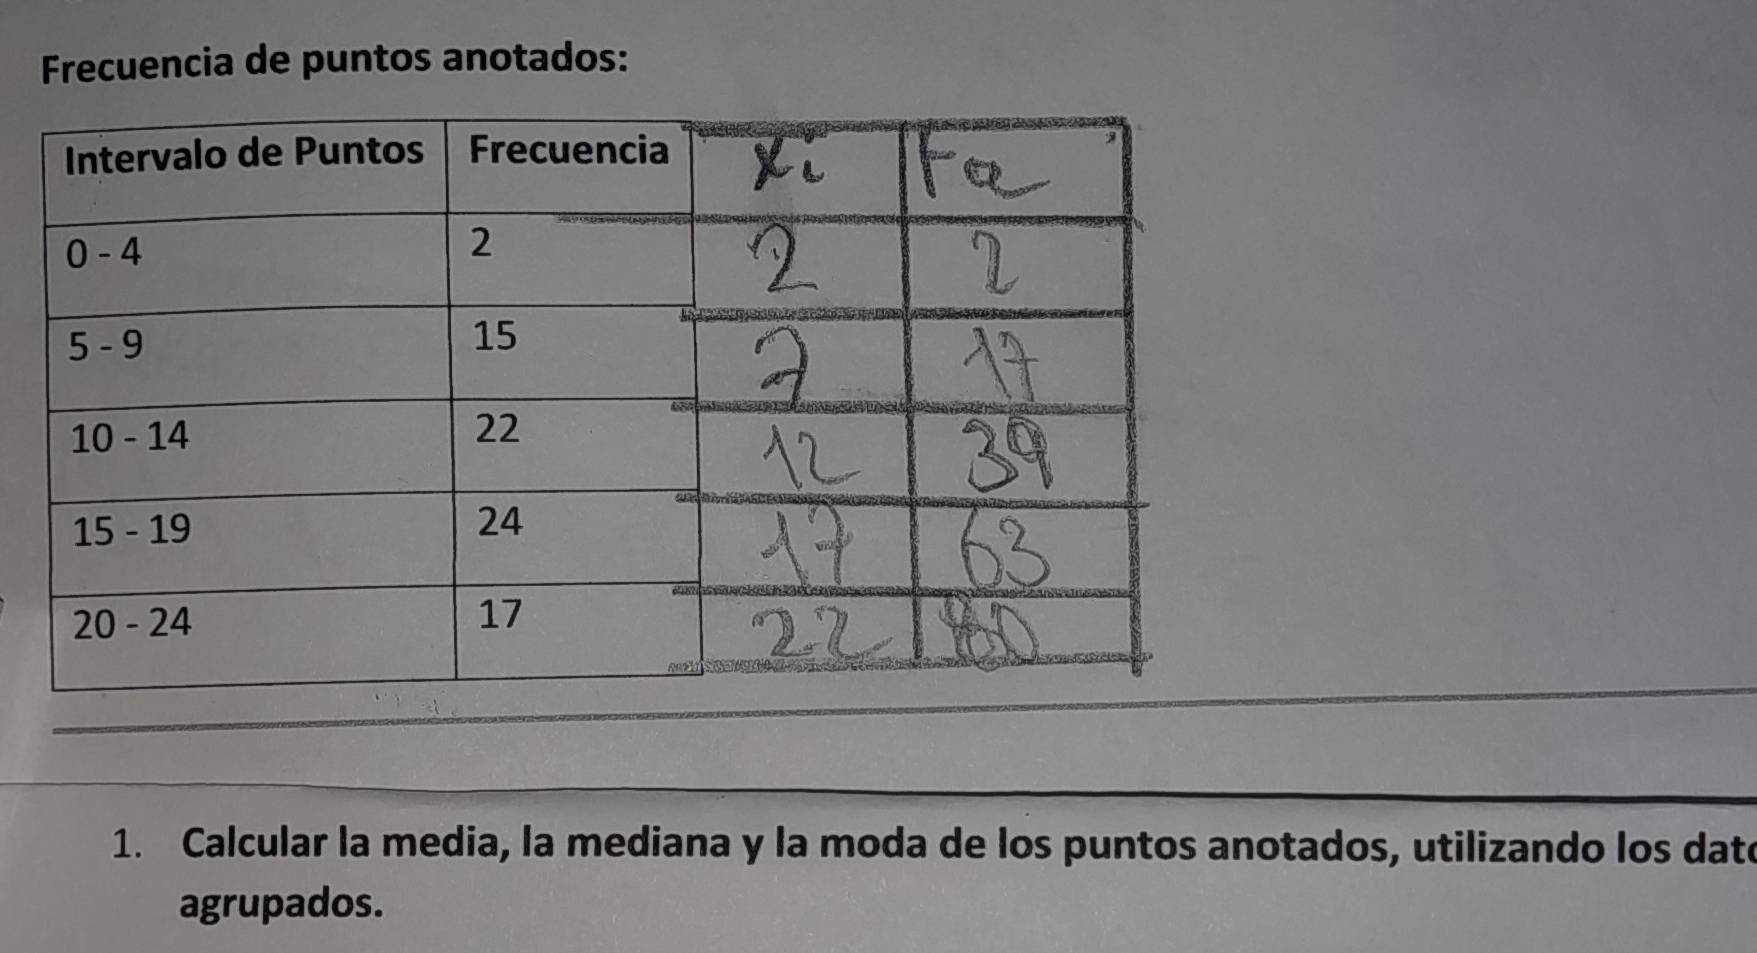 Frecuencia de puntos anotados:
Intervalo de Puntos Frecuencia Xi Fa
0 - 4 2 2 2
5 - 9 15 7 17
10 - 14 22 12 39
15 - 19 24 17 63
20 - 24 17 22 80
1. Calcular la media, la mediana y la moda de los puntos anotados, utilizando los dato
agrupados.